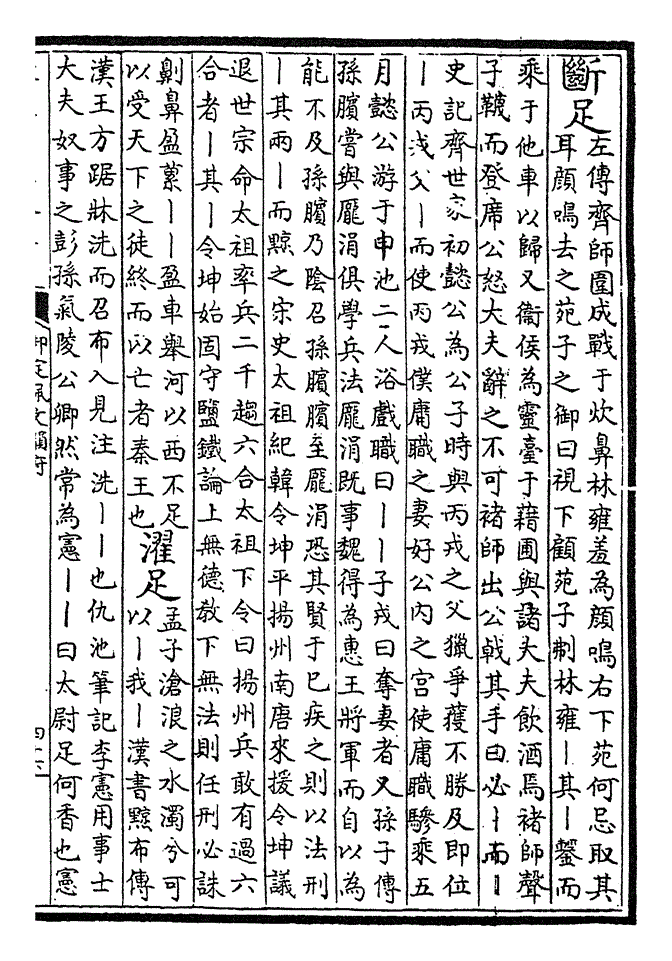 斷足
左傳齊師圍成戰于炊鼻林雍羞為顏鳴右下苑何忌取其
耳顏鳴去之苑子之御曰視下顧苑子刜林雍丨其丨鑋而
乘于他車以歸又衞侯為靈臺于藉圃與諸大夫飲酒焉褚師聲
子韈而登席公怒大夫辭之不可褚師出公戟其手曰必丨而丨
史記齊世家初懿公為公子時與丙戎之父獵爭獲不勝及即位
丨丙戎父丨而使丙戎僕庸職之妻好公内之宫使庸職驂乘五
月懿公游于申池二人浴戲職曰丨丨子戎曰奪妻者又孫子傳
孫臏嘗與龐涓俱學兵法龐涓既事魏得為惠王將軍而自以為
能不及孫臏乃陰召孫臏臏至龐涓恐其賢于已疾之則以法刑
丨其兩丨而黥之宋史太祖紀韓令坤平揚州南唐來援令坤議
退世宗命太祖率兵二千趨六合太祖下令曰揚州兵敢有過六
合者丨其丨令坤始固守鹽鐵論上無德教下無法則任刑必誅
劓鼻盈蔂丨丨盈車舉河以西不足
以受天下之徒終而以亡者秦王也
濯足
孟子滄浪之水濁兮可
以丨我丨漢書黥布傳
漢王方踞牀洗而召布入見注洗丨丨也仇池筆記李憲用事士
大夫奴事之彭孫氣陵公卿然常為憲丨丨曰太尉足何香也憲